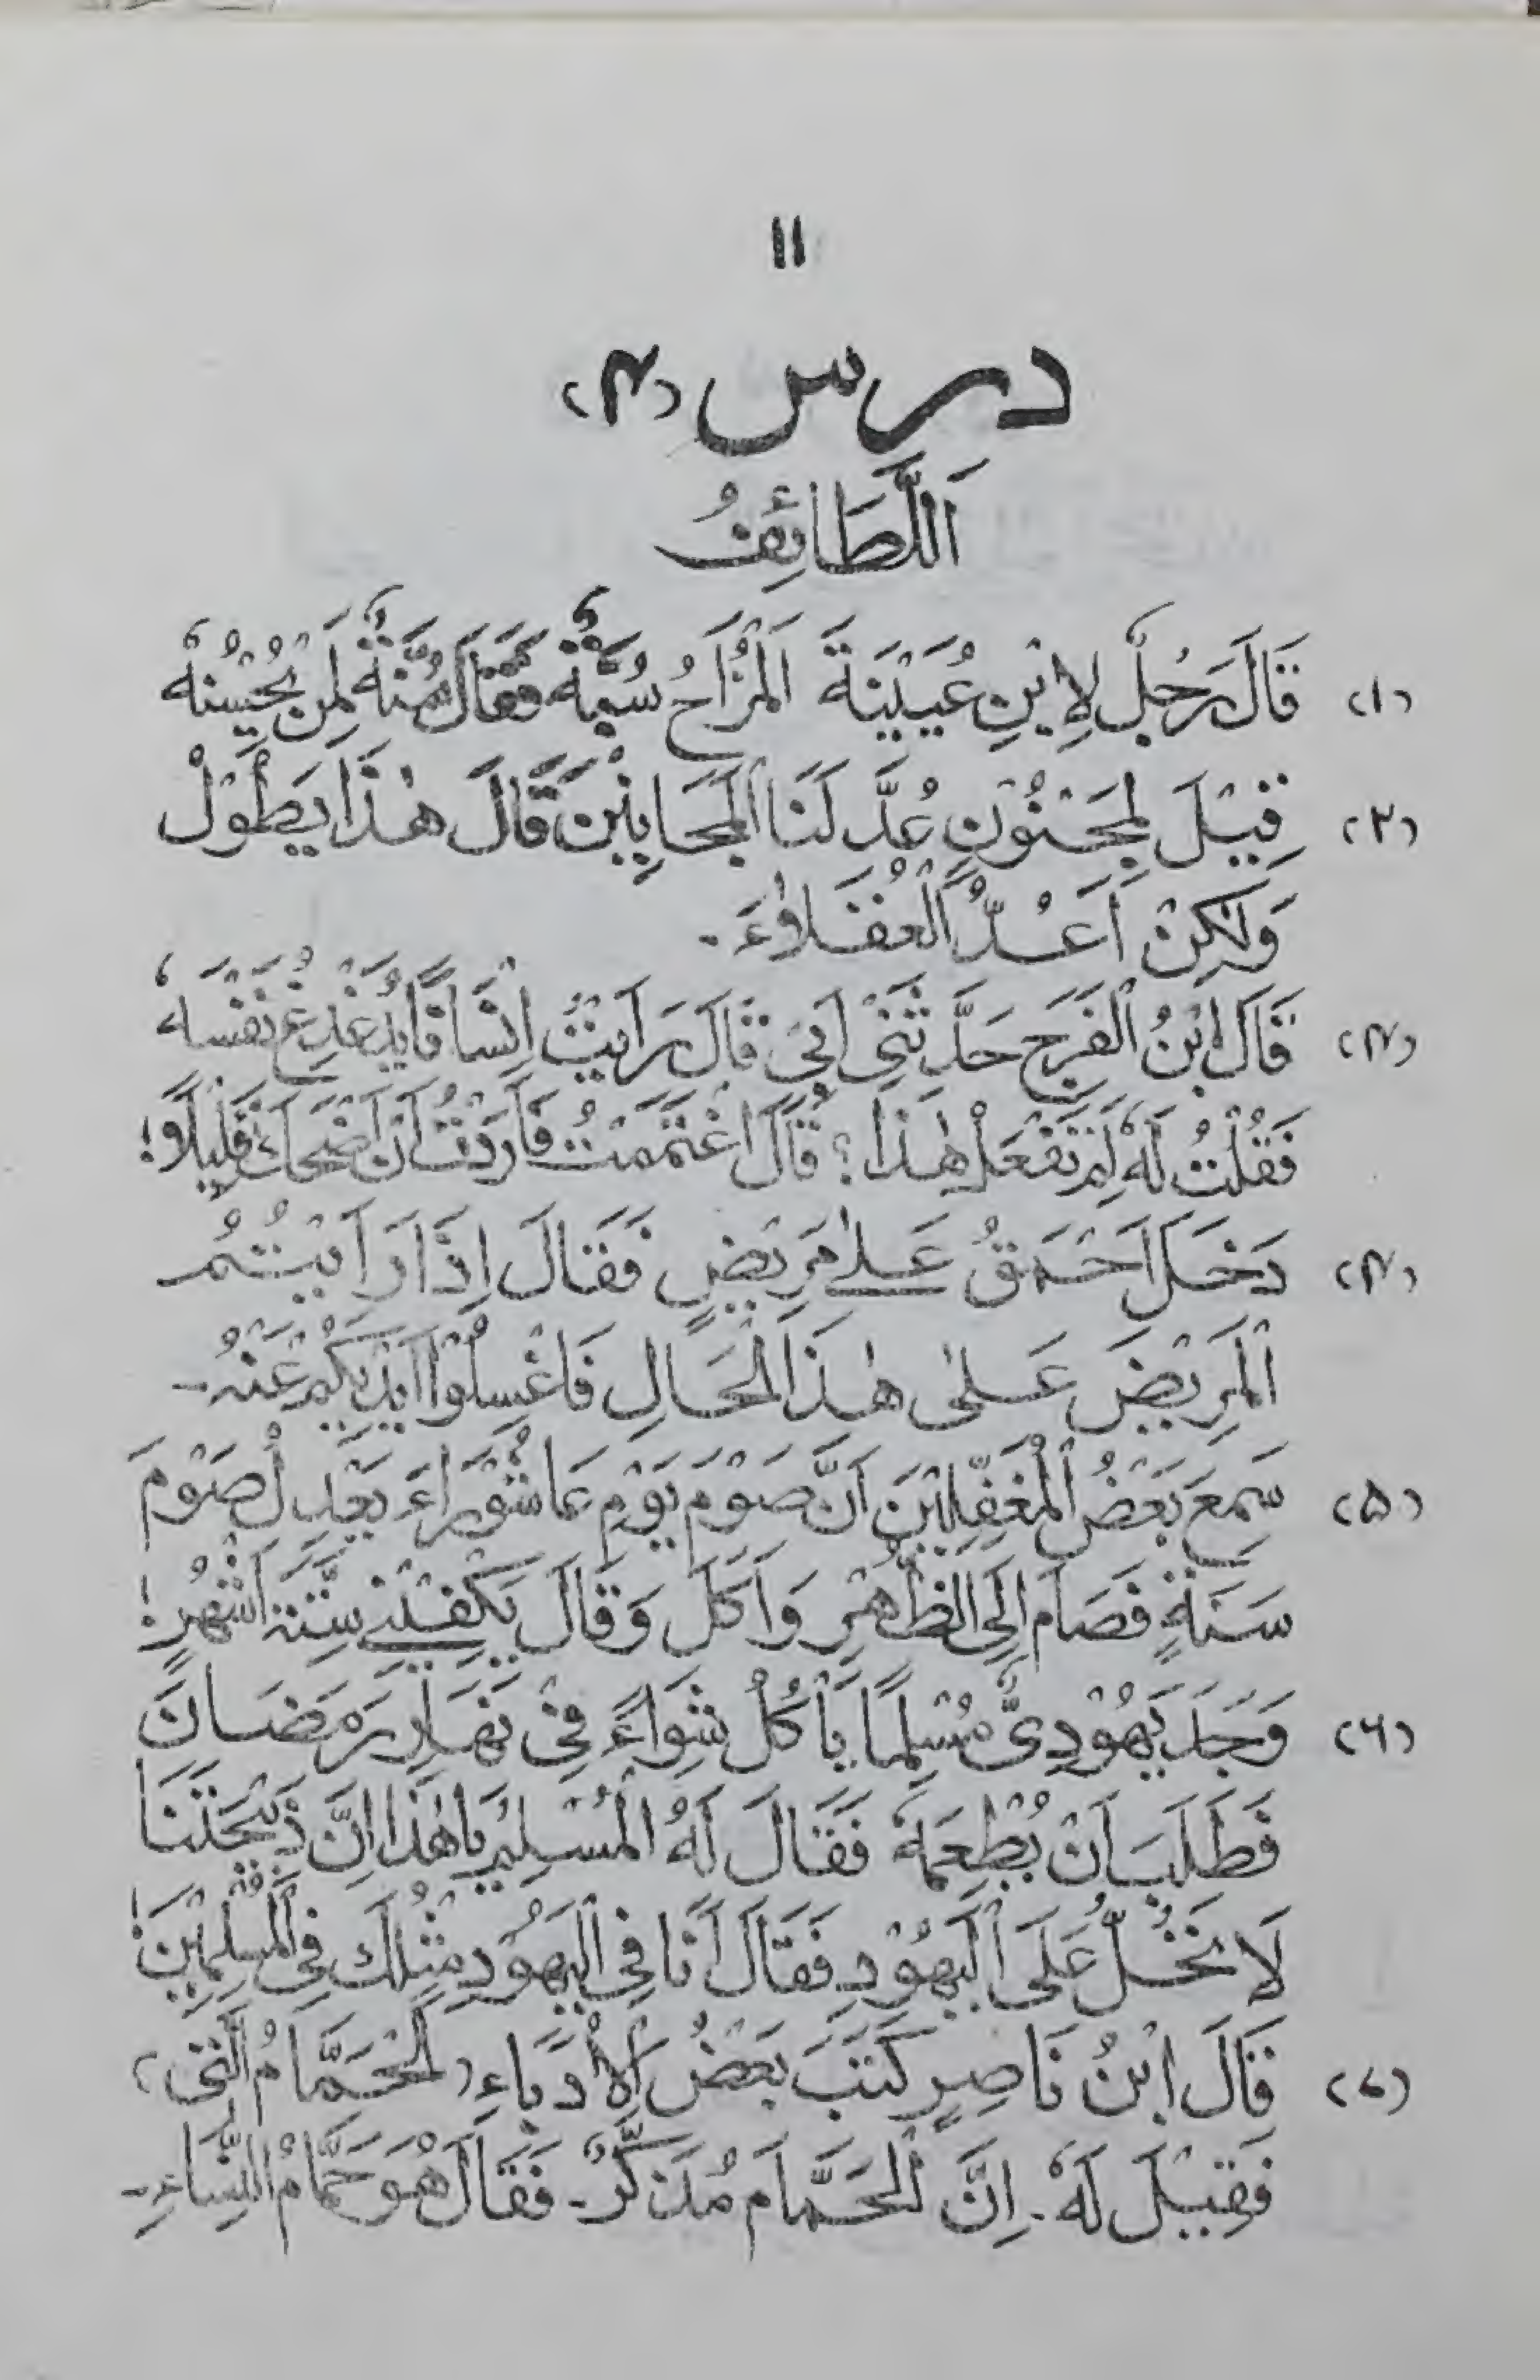 ۱۱
درس (۴)
اَللَّطَائِفُ
(۱) قَالَ رَجُلٌ لِابْنِ عُيَيْنَةَ اَلْمُزَاحُ سُبَّةٌ فَقَالَ سُنَّةٌ لِمَنْ يُحْسِنُهٗ
(۲) قِيْلَ لِمَجْنُوْنٍ عُدَّ لَنَا الْمَجَانِيْنَ قَالَ هٰذَا يَطُوْلُ
وَلٰكِنْ اَعُدُّ الْعُقَلَاءَ۔
(۳) قَالَ ابْنُ الْفَرَجِ حَدَّثَنِيْ اَبِيْ قَالَ رَاَيْتُ اِنْسَانًا يُدَغْدِغُ نَفْسَهٗ
فَقُلْتُ لَهٗ لِمَ تَفْعَلُ هٰذَا؟ قَالَ اغْتَمَمْتُ فَاَرَدْتُ اَنْ اَضْحَكَ قَلِيْلًا!
(۴) دَخَلَ اَحْمَقُ عَلٰے مَرِيْضٍ فَقَالَ اِذَا رَاَيْتُمُ
الْمَرِيْضَ عَلٰى هٰذَا الْحَالِ فَاغْسِلُوْا اَيْدِيَكُمْ عَنْهُ۔
(۵) سَمِعَ بَعْضُ الْمُغَفَّلِيْنَ اَنَّ صَوْمَ يَوْمِ عَاشُوْرَاءَ يَعْدِلُ صَوْمَ
سَنَةٍ فَصَامَ اِلَى الظُّهْرِ وَاَكَلَ وَقَالَ يَكْفِيْنِيْ سِتَّةُ اَشْهُرٍ!
(۶) وَجَدَ يَهُوْدِيٌّ مُسْلِمًا يَاْكُلُ شِوَاءً فِيْ نَهَارِ رَمَضَانَ
فَطَلَبَ اَنْ يُطْعِمَهٗ فَقَالَ لَهُ الْمُسْلِمُ يَا هٰذَا اِنَّ ذَبِيْحَتَنَا
لَا تَحِلُّ عَلَى الْيَهُوْدِ فَقَالَ اَنَا فِي الْيَهُوْدِ مِثْلُكَ فِي الْمُسْلِمِيْنَ!
(۷) قَالَ ابْنُ نَاصِرٍ كَتَبَ بَعْضُ الْاُدَبَاءِ (اَلْحَمَّامُ الَّتِيْ)
فَقِيْلَ لَهٗ۔ اِنَّ الْحَمَّامَ مُذَكَّرٌ۔ فَقَالَ هُوَ حَمَّامُ النِّسَاءِ۔